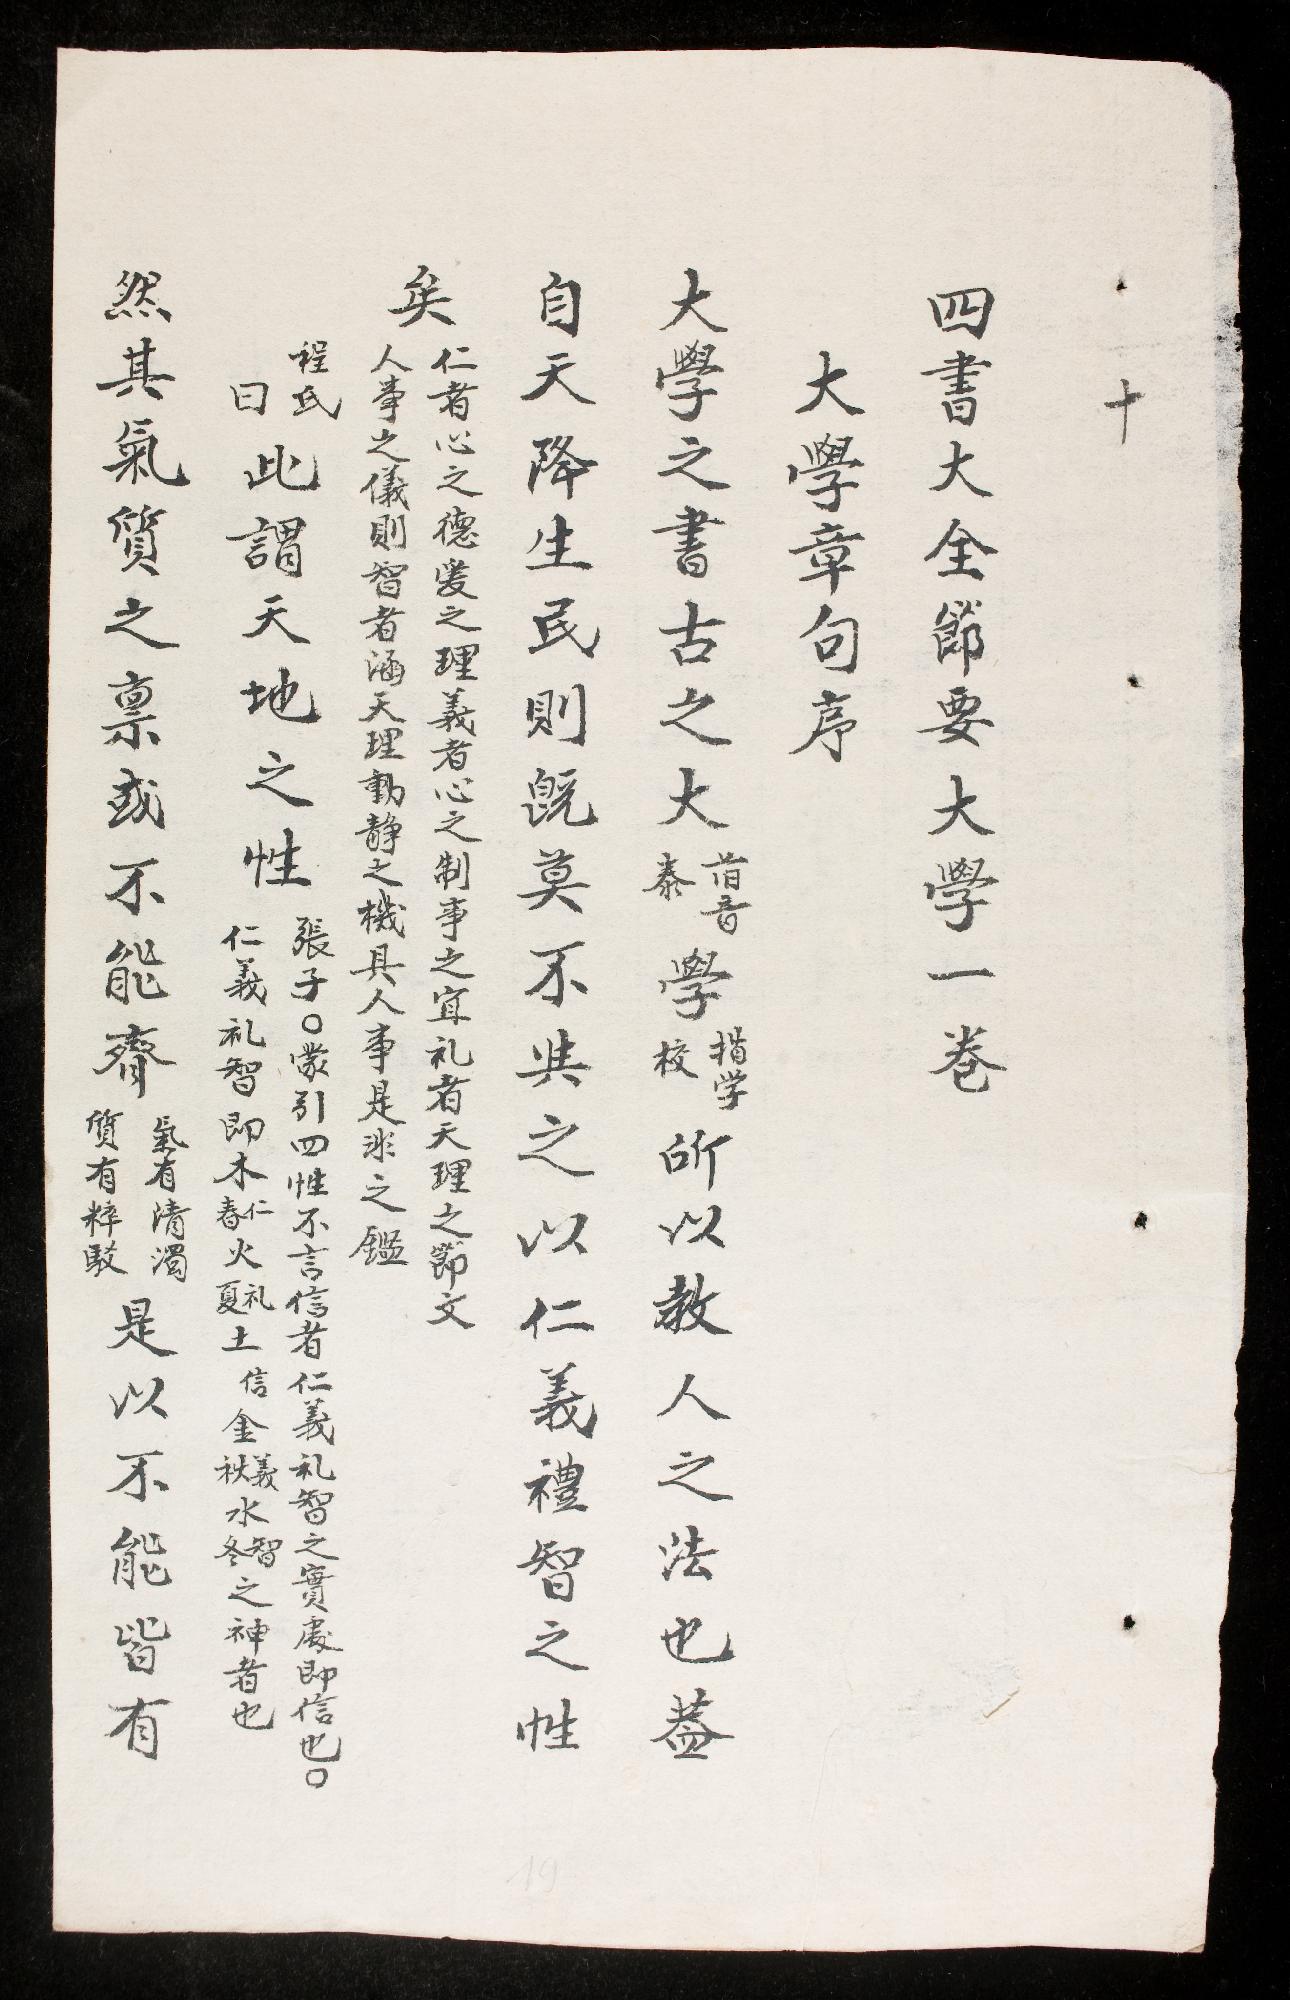 十
四書大全節要大學一卷
大學章句序
大學之書古之大
昔音
泰
學
指学
校
所以教人之法也蓋
自天降生民則既莫不與之以仁義禮智之性
矣
仁者心之德爱之理義者心之制事之宜礼者天理之節文
人事之儀則智者涵天理動静之機具人事是非之鑑
程氏
曰
此謂天地之性
張子○蒙引四性不言信者仁義礼智之實處即信也○
仁義礼智即木
仁
春
火
礼
夏
土
信
金
義
秋
水
智
冬
之神者也
然其氣質之禀或不能齊
氣有清濁
質有粹駁
是以不能皆有
19